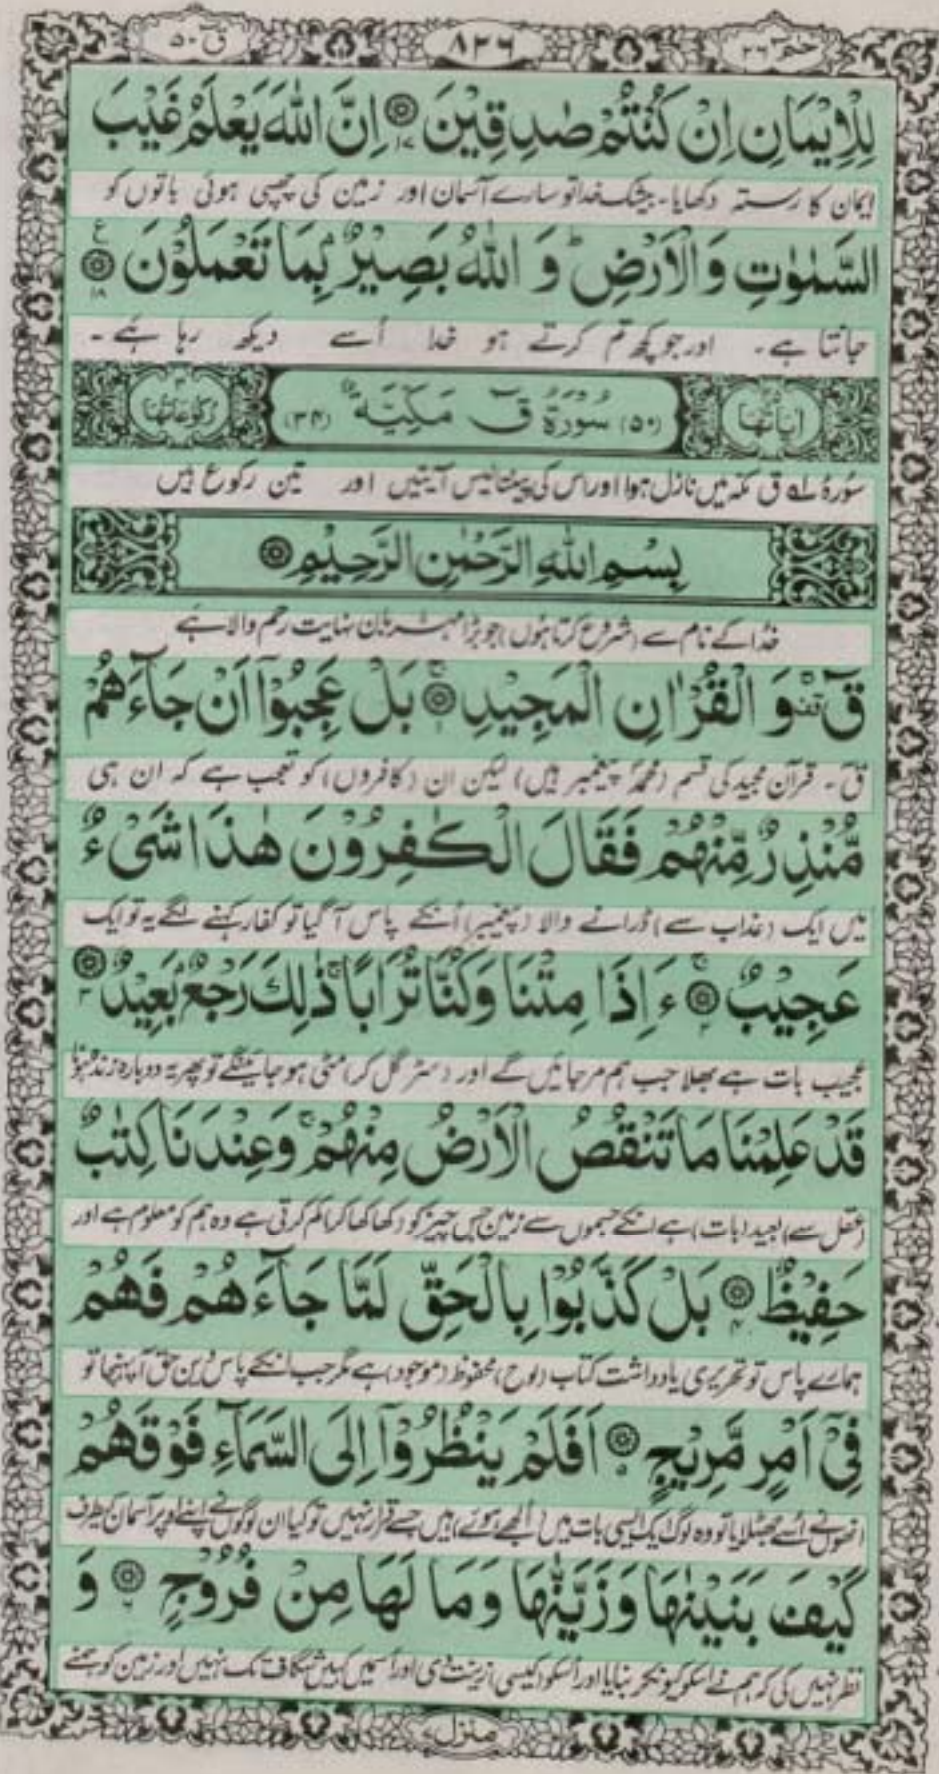 ق ٥٠ ٨٢٦ حٰمٓ ٢٦
لِلْاِیْمَانِ اِنْ کُنْتُمْ صٰدِقِیْنَ ۝۱۷ اِنَّ اللّٰهَ یَعْلَمُ غَیْبَ
ایمان کا رستہ دکھایا۔ بیشک خدا تو سارے آسمان اور زمین کی چھپی ہوئی باتوں کو
السَّمٰوٰتِ وَ الْاَرْضِ ؕ وَ اللّٰهُ بَصِیْرٌۢ بِمَا تَعْمَلُوْنَ ۝۱۸ ع
جانتا ہے۔ اور جو کچھ تم کرتے ہو خدا اُسے دیکھ رہا ہے۔
اٰیَاتُهَا (٥٠) سُوْرَةُ قٓ مَكِّيَّةٌ (٣٤) رُكُوْعَاتُهَا ٣
سُورۂ لہ ق مکہ میں نازل ہوا اور اس کی پینتالیس آیتیں اور تین رکوع ہیں
بِسْمِ اللّٰهِ الرَّحْمٰنِ الرَّحِیْمِ ۝
خدا کے نام سے (شروع کرتا ہوں) جو بڑا مہربان نہایت رحم والا ہے
قٓ ۫ۚ وَ الْقُرْاٰنِ الْمَجِیْدِ ۝۱ۚ بَلْ عَجِبُوْۤا اَنْ جَآءَهُمْ
قٓ۔ قرآن مجید کی قسم (محمدؐ پیغمبر ہیں) لیکن ان (کافروں) کو تعجب ہے کہ ان ہی
مُّنْذِرٌ مِّنْهُمْ فَقَالَ الْكٰفِرُوْنَ هٰذَا شَیْءٌ
میں ایک (عذاب سے) ڈرانے والا (پیغمبر) اُنکے پاس آ گیا تو کفار کہنے لگے یہ تو ایک
عَجِیْبٌ ۝۲ۚ ءَاِذَا مِتْنَا وَ كُنَّا تُرَابًا ۚ ذٰلِكَ رَجْعٌۢ بَعِیْدٌ ۝۳
عجیب بات ہے بھلا جب ہم مر جائیں گے اور (سڑ گل کر) مٹی ہو جائینگے تو پھر یہ دوبارہ زندہ ہونا
قَدْ عَلِمْنَا مَا تَنْقُصُ الْاَرْضُ مِنْهُمْ ۚ وَ عِنْدَنَا كِتٰبٌ
(عقل سے) بعید (بات) ہے انکے جسموں سے زمین جس چیز کو (کھا کھا کر) کم کرتی ہے وہ ہم کو معلوم ہے اور
حَفِیْظٌ ۝۴ بَلْ كَذَّبُوْا بِالْحَقِّ لَمَّا جَآءَهُمْ فَهُمْ
ہمارے پاس تو تحریری یادداشت کتاب (لوح) محفوظ (موجود) ہے مگر جب انکے پاس دین حق آ پہنچا تو
فِیْۤ اَمْرٍ مَّرِیْجٍ ۝۵ اَفَلَمْ یَنْظُرُوْۤا اِلَی السَّمَآءِ فَوْقَهُمْ
انھوں نے اُسے جھٹلایا تو وہ لوگ ایک ایسی بات میں (الجھے ہوئے) ہیں جسے قرار نہیں تو کیا ان لوگوں نے اپنے اوپر آسمان کیطرف
كَیْفَ بَنَیْنٰهَا وَ زَیَّنّٰهَا وَ مَا لَهَا مِنْ فُرُوْجٍ ۝۶ وَ
نظر نہیں کی کہ ہم نے اسکو کیونکر بنایا اور اُسکو (کیسی) زینت دی اور اُسمیں کہیں شگاف تک نہیں اور زمین کو ہمنے
منزل ۷